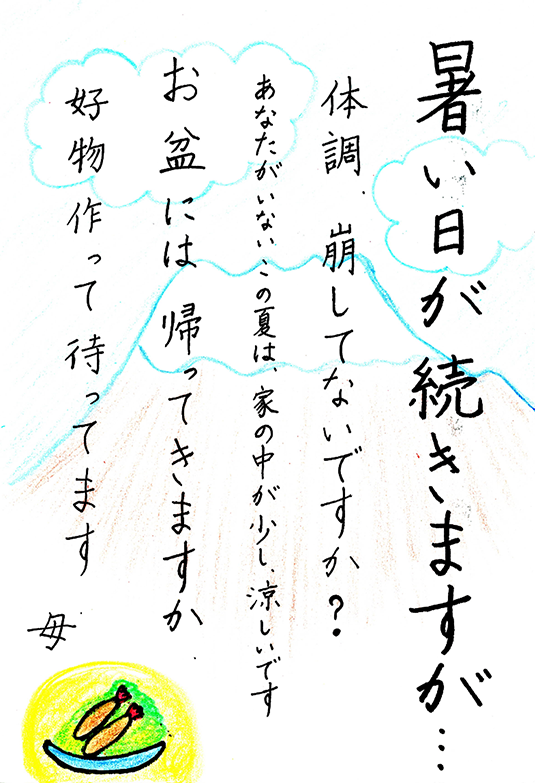 暑い日が続きますが…
体調、崩してないですか？
あなたがいないこの夏は、家の中が少し、涼しいです
お盆には 帰ってきますか
好物作って待ってます
母